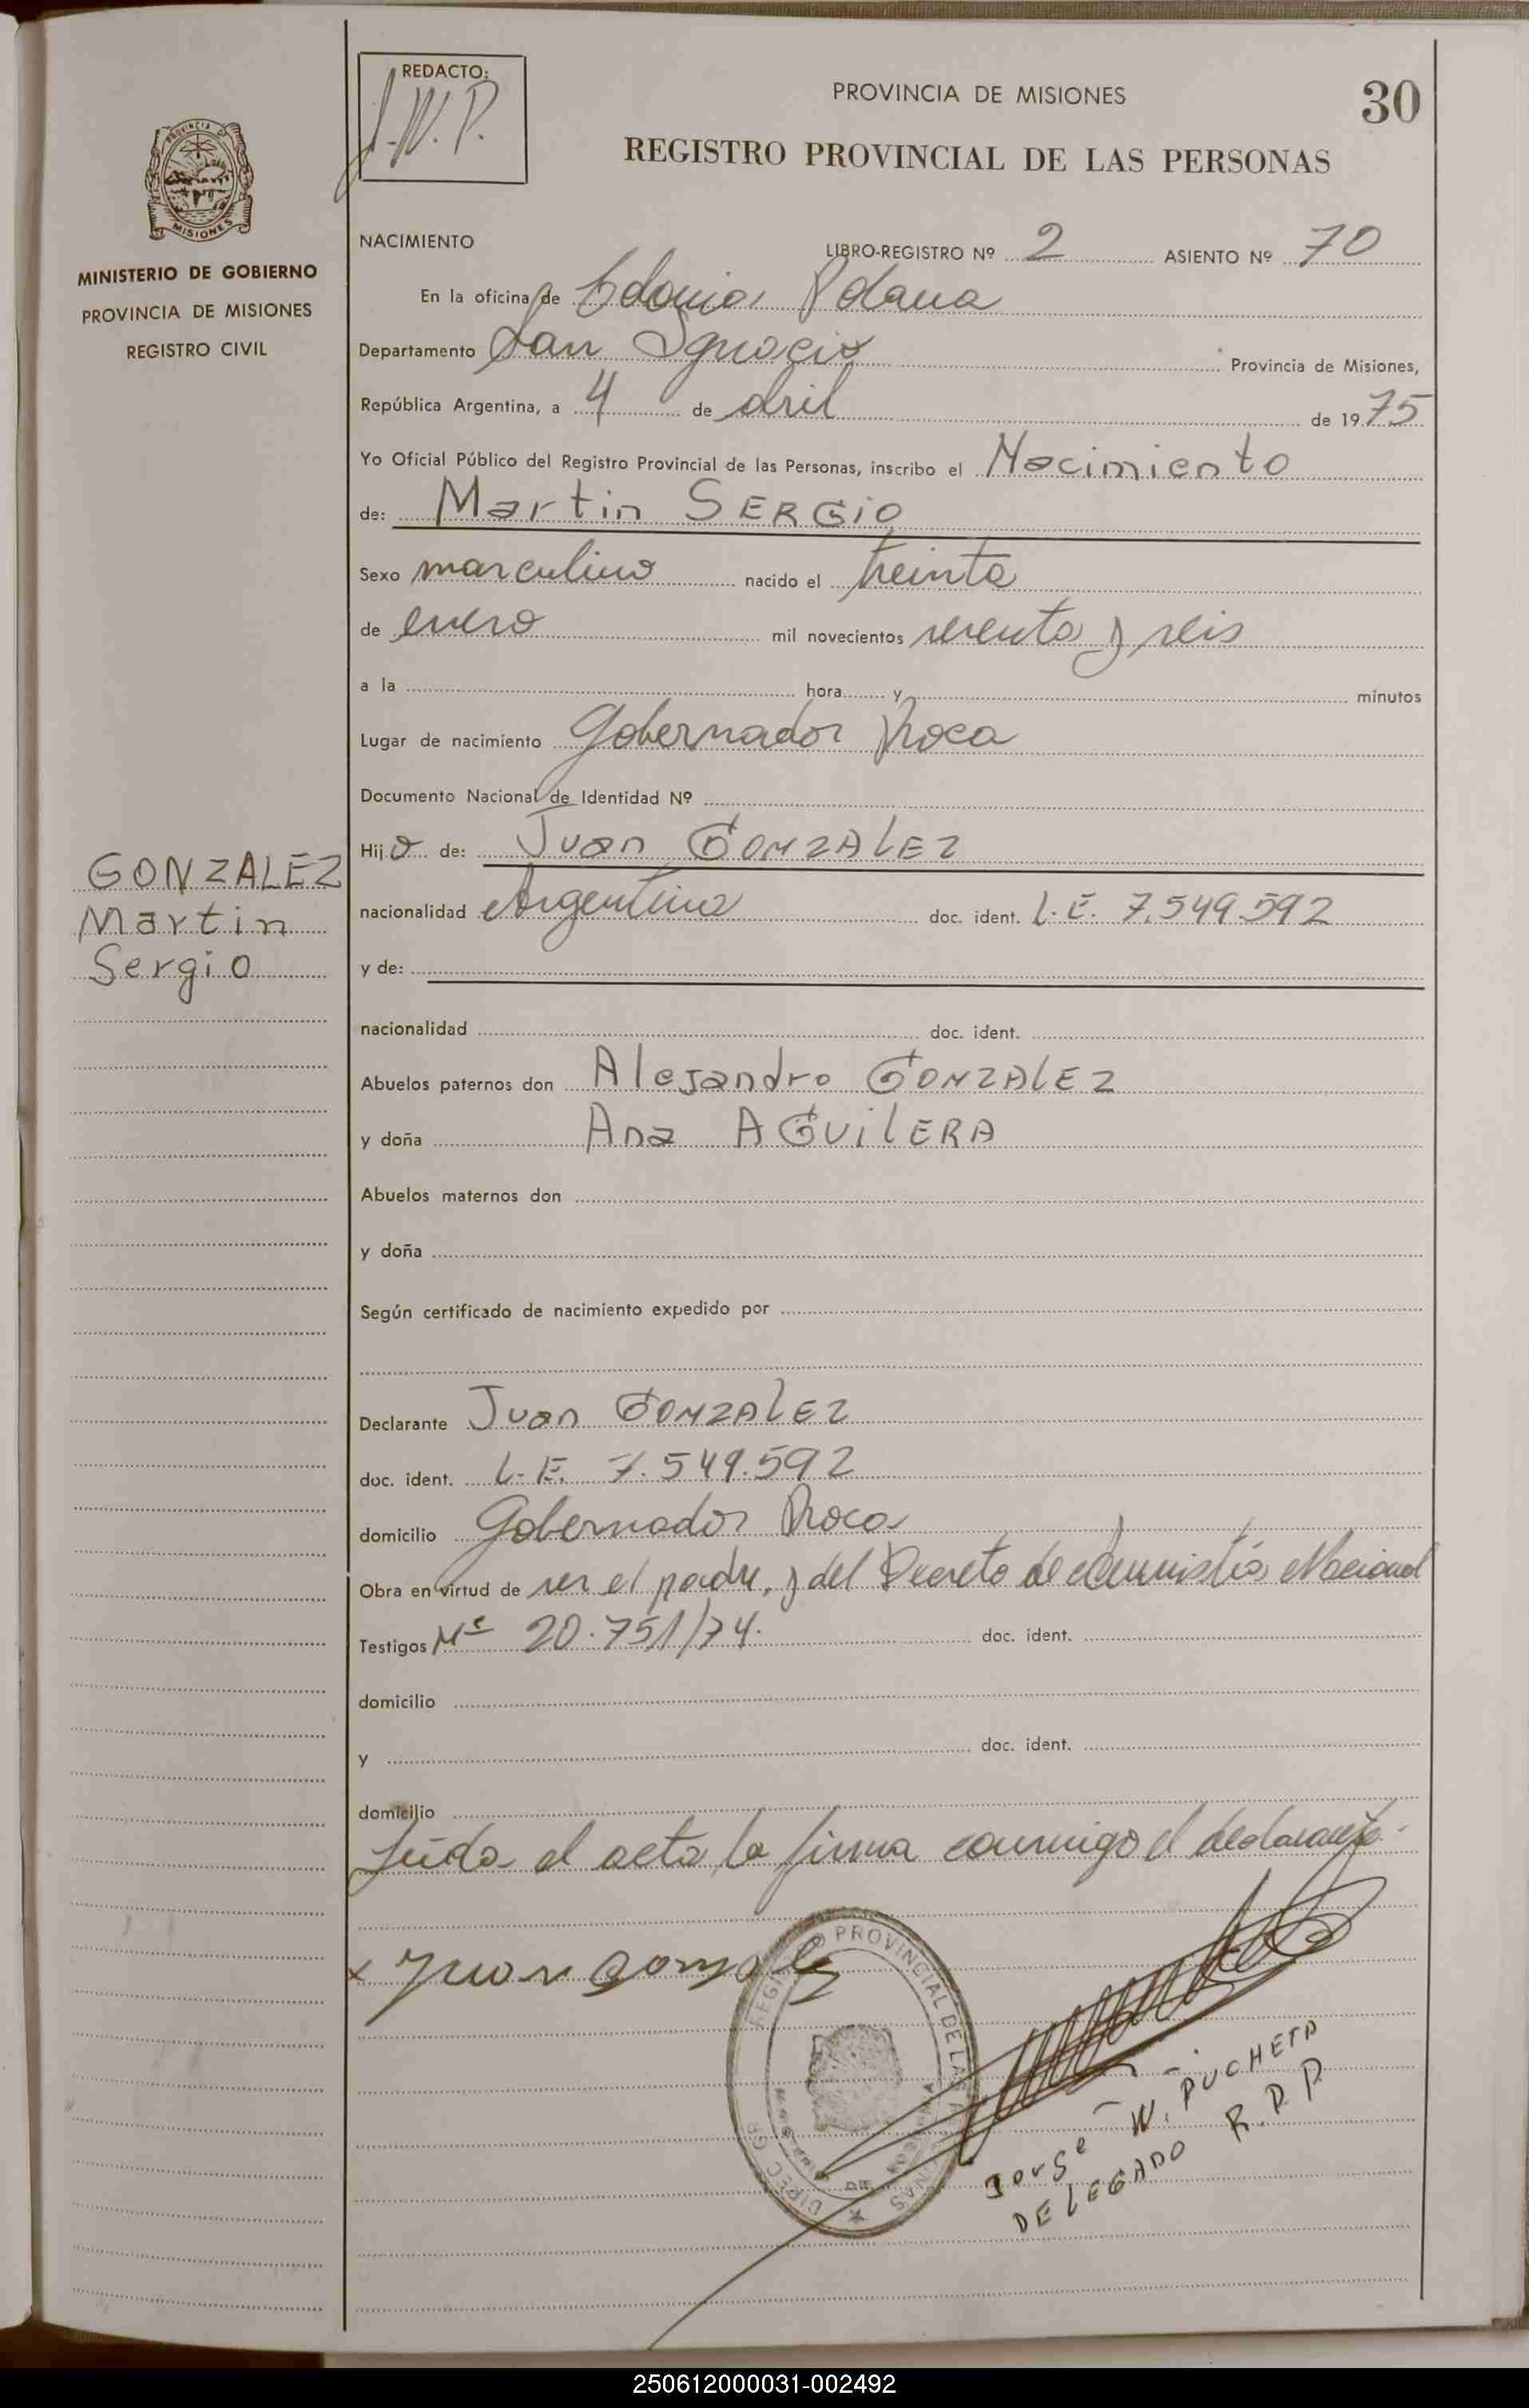 REDACTO:
J.W.P.
PROVINCIA DE MISIONES
30
REGISTRO PROVINCIAL DE LAS PERSONAS
PROVINCIA D
MISIONES
MINISTERIO DE GOBIERNO
PROVINCIA DE MISIONES
REGISTRO CIVIL
NACIMIENTO LIBRO-REGISTRO Nº 2 ASIENTO Nº 70
En la oficina de Colonia Polana
Departamento San Ignacio Provincia de Misiones,
República Argentina, a 4 de abril de 1975
Yo Oficial Público del Registro Provincial de las Personas, inscribo el Nacimiento
de: Martin SERGIO
Sexo masculino nacido el treinta
de enero mil novecientos sesenta y seis
a la hora y minutos
Lugar de nacimiento Gobernador Roca
Documento Nacional de Identidad Nº
Hijo de: Juan GONZALEZ
GONZALEZ
Martin
Sergio
nacionalidad Argentina doc. ident. L.E. 7.549.592
y de:
nacionalidad doc. ident.
Abuelos paternos don Alejandro GONZALEZ
y doña Ana AGUILERA
Abuelos maternos don
y doña
Según certificado de nacimiento expedido por
Declarante Juan GONZALEZ
doc. ident. L.E. 7.549.592
domicilio Gobernador Roca
Obra en virtud de ser el padre, y del Decreto de Amnistía Nacional
Testigos Nº 20.751/74. doc. ident.
domicilio
y doc. ident.
domicilio
Leída el acta, la firma conmigo el declarante.-
x Juan Gonzalez
REGISTRO PROVINCIAL DE LAS PERSONAS
DIREC. GR
Jorge W. PUCHETA
DELEGADO R.P.P
250612000031-002492